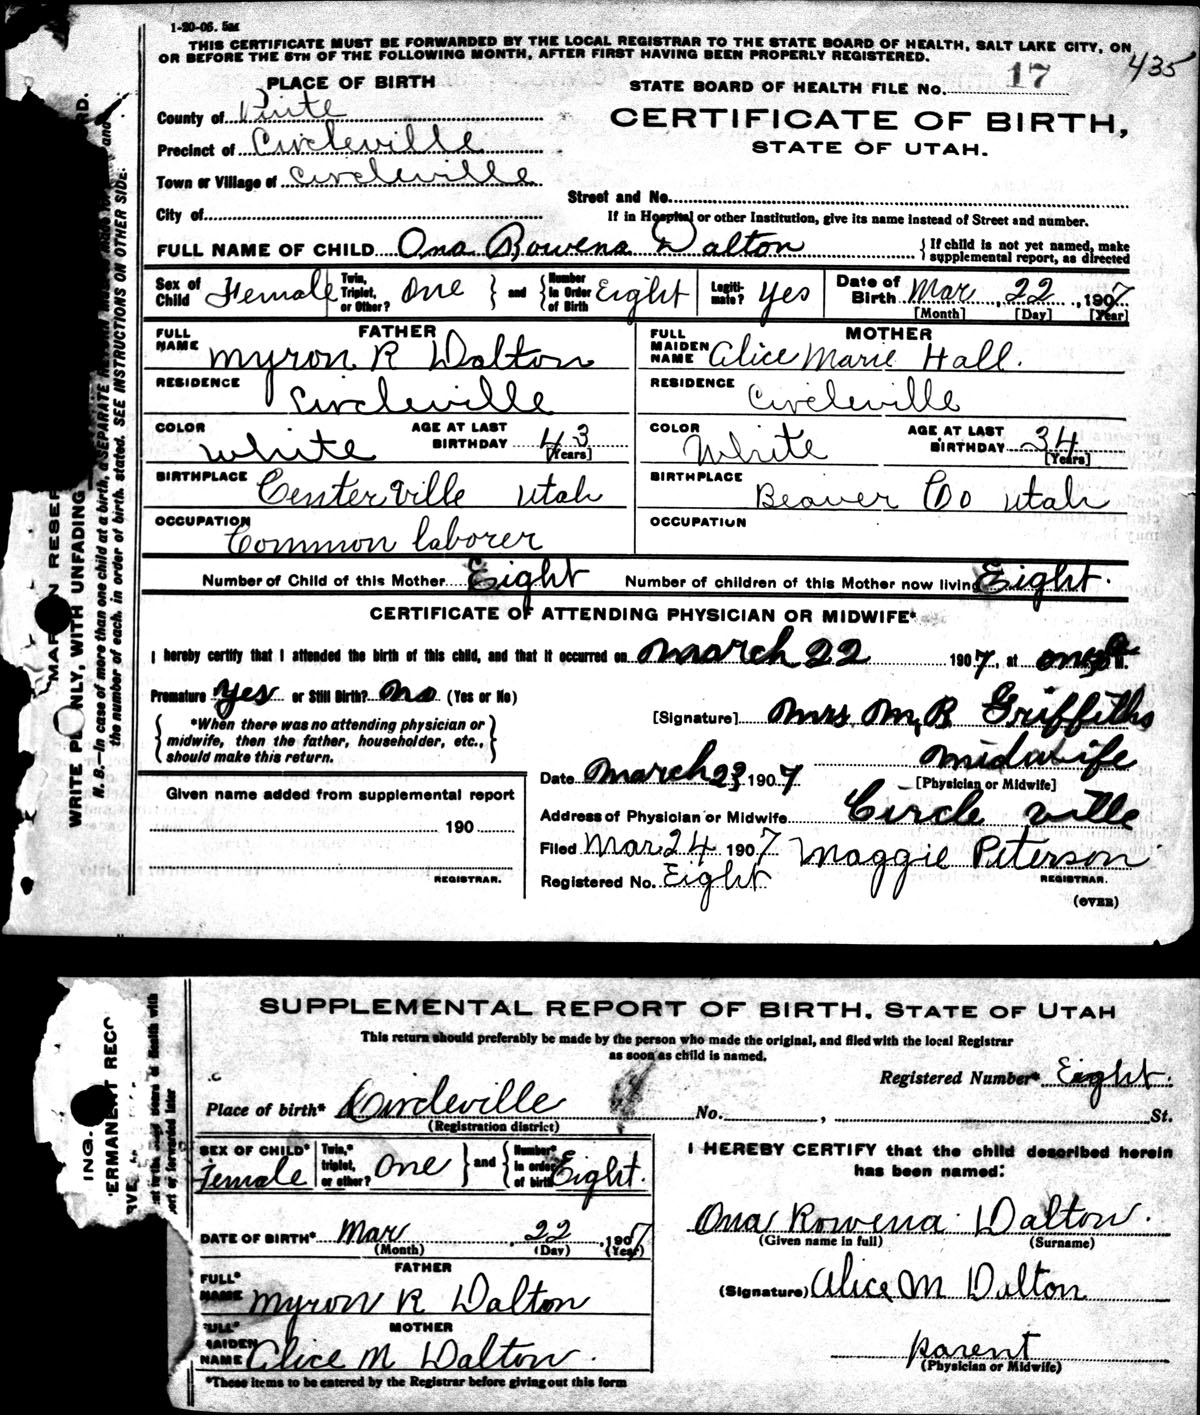 1-20-06. 5m
THIS CERTIFICATE MUST BE FORWARDED BY THE LOCAL REGISTRAR TO THE STATE BOARD OF HEALTH, SALT LAKE CITY, ON
OR BEFORE THE 5TH OF THE FOLLOWING MONTH, AFTER FIRST HAVING BEEN PROPERLY REGISTERED.
435
PLACE OF BIRTH
STATE BOARD OF HEALTH FILE No. 17
County of Piute
CERTIFICATE OF BIRTH,
Precinct of Circleville
STATE OF UTAH.
Town or Village of Circleville
Street and No.
City of
If in Hospital or other Institution, give its name instead of Street and number.
FULL NAME OF CHILD Ona Rowena Dalton { If child is not yet named, make supplemental report, as directed
Sex of Child Female Twin, Triplet, or Other? One } and { Number in Order of Birth Eight Legitimate? Yes Date of Birth Mar 22, 1907
[Month] [Day] [Year]
FATHER
FULL NAME Myron R Dalton
RESIDENCE Circleville
COLOR White AGE AT LAST BIRTHDAY 43 [Years]
BIRTHPLACE Centerville Utah
OCCUPATION Common laborer
MOTHER
FULL MAIDEN NAME Alice Marie Hall.
RESIDENCE Circleville
COLOR White AGE AT LAST BIRTHDAY 34 [Years]
BIRTHPLACE Beaver Co Utah
OCCUPATION
Number of Child of this Mother Eight Number of children of this Mother now living Eight.
CERTIFICATE OF ATTENDING PHYSICIAN OR MIDWIFE*
I hereby certify that I attended the birth of this child, and that it occurred on March 22 1907, at one
Premature yes or Still Birth? No (Yes or No)
[Signature] Mrs M, R Griffiths
{ *When there was no attending physician or midwife, then the father, householder, etc., should make this return. }
midwife
[Physician or Midwife]
Date March 23, 1907
Address of Physician or Midwife Circle ville
Filed Mar 24 1907 Maggie Peterson
REGISTRAR.
Registered No. Eight
(OVER)
Given name added from supplemental report
190
REGISTRAR.
WRITE PLONLY, WITH UNFADING
N. B.—In case of more than one child at a birth, a SEPARATE
the number of each, in order of birth, stated. SEE INSTRUCTIONS ON OTHER SIDE.
SUPPLEMENTAL REPORT OF BIRTH, STATE OF UTAH
This return should preferably be made by the person who made the original, and filed with the local Registrar
as soon as child is named.
Registered Number* Eight.
Place of birth* Circleville No. , St.
(Registration district)
SEX OF CHILD* Female Twin,* triplet, or other? One } and { Number* in order of birth Eight.
DATE OF BIRTH* Mar 22, 1907
(Month) (Day) (Year)
FATHER
FULL* NAME Myron R Dalton
MOTHER
FULL* MAIDEN NAME Alice M Dalton.
*These items to be entered by the Registrar before giving out this form
I HEREBY CERTIFY that the child described herein
has been named:
Ona Rowena Dalton.
(Given name in full) (Surname)
(Signature) Alice M Dalton
parent
(Physician or Midwife)